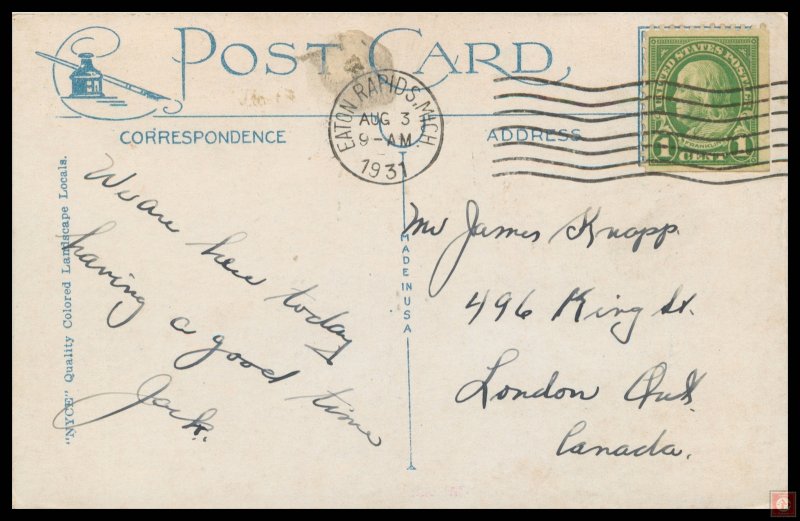 POST CARD
CORRESPONDENCE
ADDRESS
EATON RAPIDS, MICH
AUG 3
9-AM
1931
UNITED STATES POSTAGE
FRANKLIN
1 CENT 1
We are here today
having a good time
Jack.
Mr James Knapp.
496 King St.
London Ont.
Canada.
MADE IN USA
"NYCE" Quality Colored Landscape Locals.